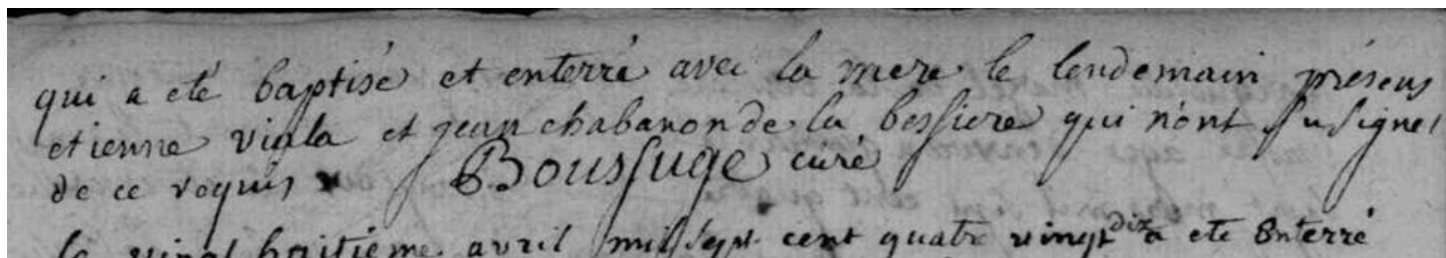 qui a eté baptisé et enterré avec la mere le lendemain présens
etienne viala et jean chabanon de la bessiere qui n'ont su signer
de ce requis Boussuge curé
le vingt huitième avril mil sept cent quatre vingt dix a ete enterré